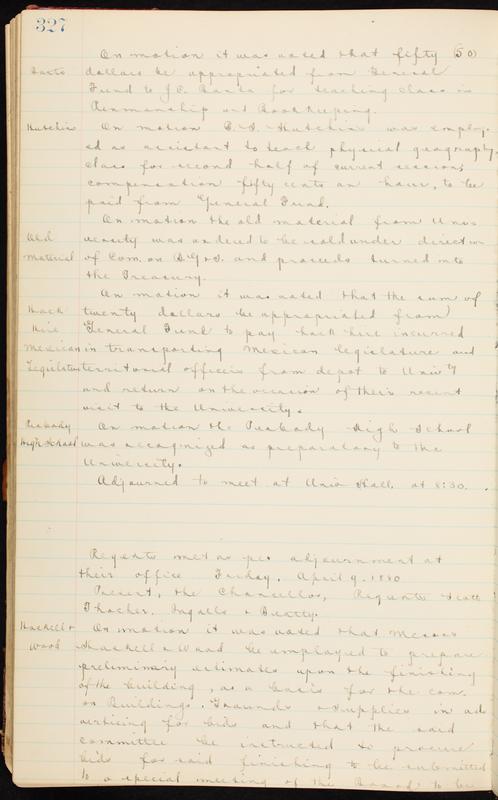 327
On motion it was voted that fifty (50)
dollars be appropriated from General
Fund to J.C. for teaching class in
Penmanship and Bookkeeping.
Hutchin On motion B.S. Hutchin was employ-
ed as assistant to teach physical geography
class for second half of current session,
compensation fifty cents an hour, to be
paid from General Fund.
On motion the old material from Univ-
Old ersity was ordered to be sold under direction
material of Com. on B.G.&S. and proceeds turned into
the Treasury.
On motion it was voted that the sum of
Hack twenty dollars be appropriated from
Hire General Fund to pay hack hire incurred
Mexican in transporting Mexican legislature and
Legislature territorial officers from depot to Univ'ty
and return on the occasion of their recent
visit to the University.
Peabody On motion the Peabody High School
High School was recognized as preparatory to the
University.
Adjourned to meet at Univ Hall. at 8:30.
Regents met as per adjournment at
their office Friday, April 9. 1880
Present, the Chancellor, Regents Scott
Thacher, Ingalls & Beatty.
Haskell & On motion it was voted that Messrs
Wood Haskell & Wood be employed to prepare
preliminary estimates upon the finishing
of the building, as a basis for the com.
on Buildings, Grounds & Supplies in ad-
vertising for bids and that the said
committee be instructed to procure
bids for said finishing to be submitted
to a special meeting of the Board to be